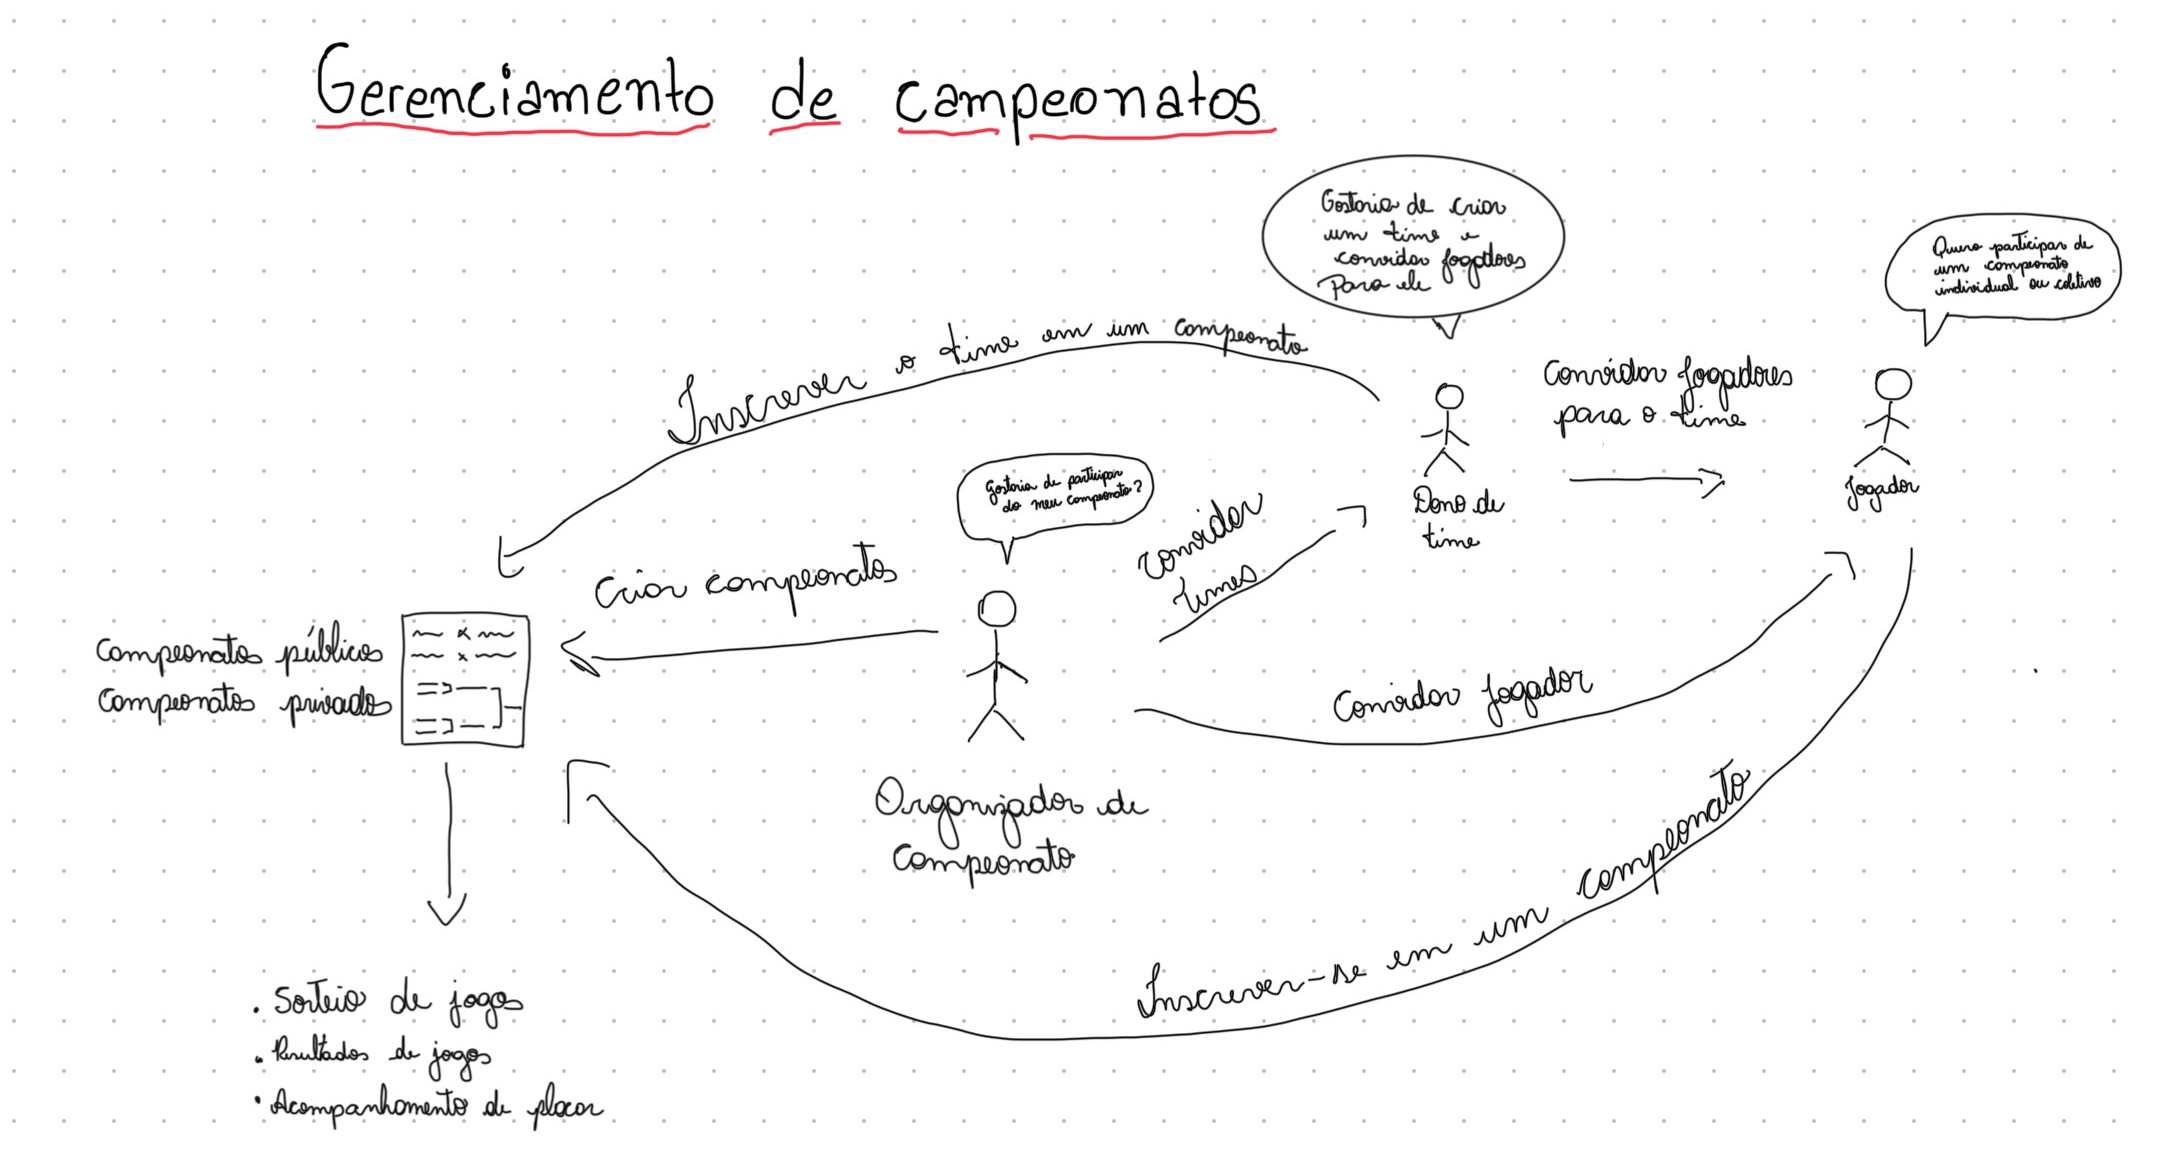 Gerenciamento de campeonatos
Gostaria de criar
um time e
convidar jogadores
Para ele
Quero participar de
um campeonato
individual ou coletivo
Inscrever o time em um campeonato
Convidar jogadores
para o time
Dono de
time
Jogador
Gostaria de participar
do meu campeonato?
Convidar
times
Criar campeonatos
Campeonatos públicos
Campeonatos privados
Convidar jogador
Organizador de
Campeonato
Inscrever-se em um campeonato
. Sorteio de jogos
. Resultados de jogos
. Acompanhamento de placar